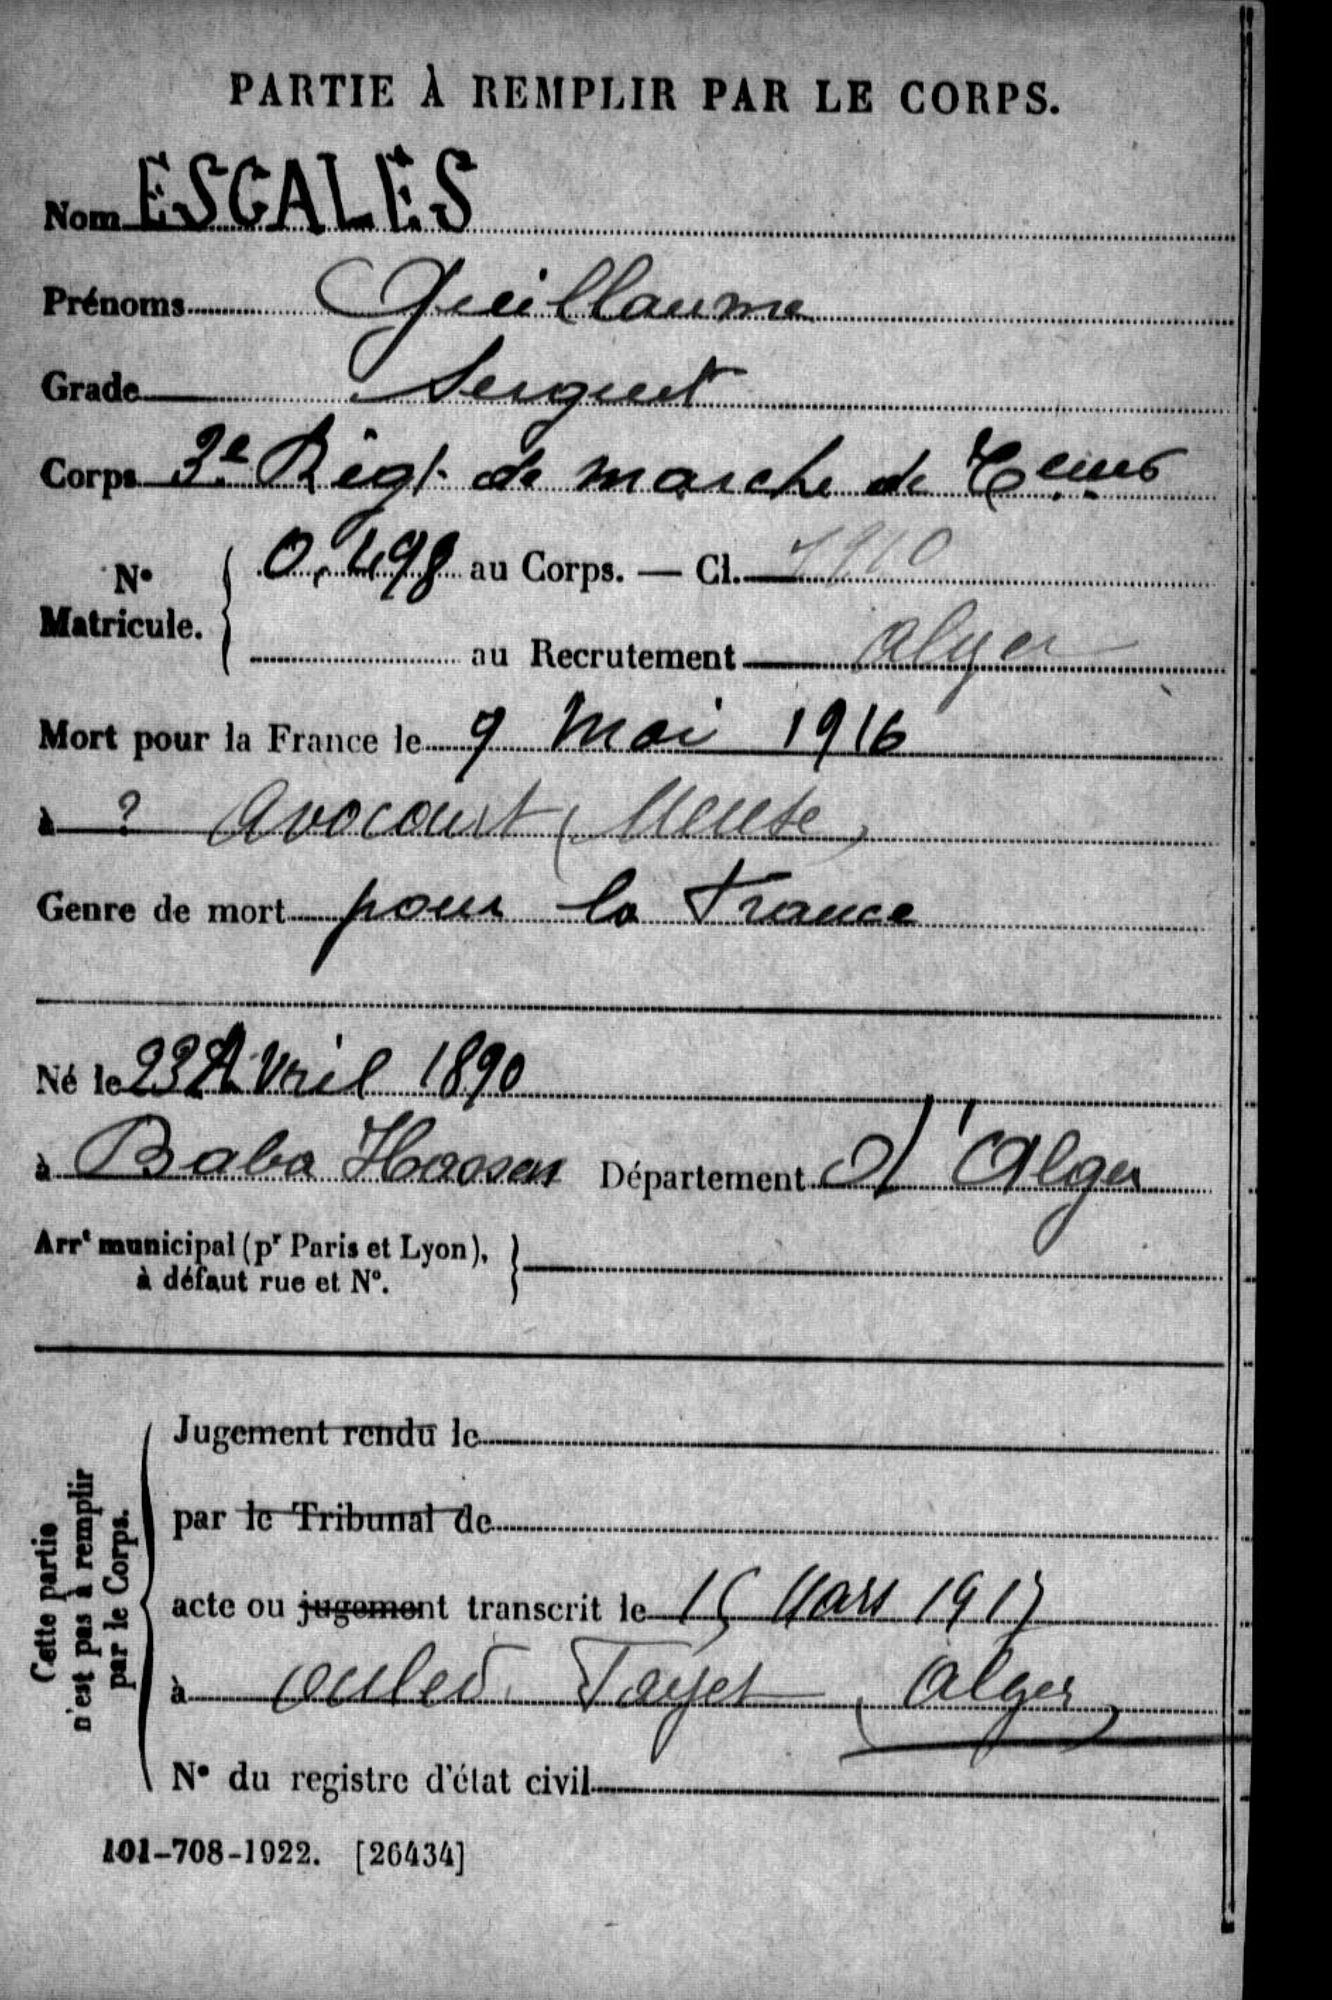 PARTIE À REMPLIR PAR LE CORPS.
Nom ESCALÈS
Prénoms Guillaume
Grade Sergent
Corps 3e Régt de marche de Teurs
N° Matricule. 0,498 au Corps. — Cl. 1910
au Recrutement Alger
Mort pour la France le 9 Mai 1916
à ? Avocourt (Meuse)
Genre de mort pour la France
Né le 23 Avril 1890
à Baba Hassen Département d'Alger
Arrt municipal (pr Paris et Lyon),
à défaut rue et N°.
Cette partie
n'est pas à remplir
par le Corps.
Jugement rendu le
par le Tribunal de
acte ou jugement transcrit le 15 Mars 1917
à Ouled Fayet (Alger)
N° du registre d'état civil
101-708-1922. [26434]